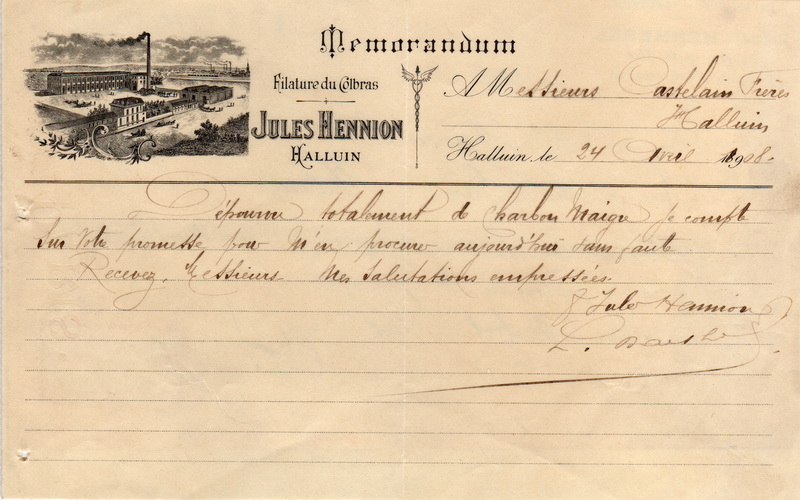 Memorandum
Filature du Colbras
JULES HENNION
HALLUIN
A Messieurs Castelain Frères
Halluin
Halluin, le 24 Avril 1908.
Dépourvu totalement de charbon maigre je compte
sur votre promesse pour m'en procurer aujourd'hui sans faute.
Recevez, Messieurs mes salutations empressées.
Jules Hennion